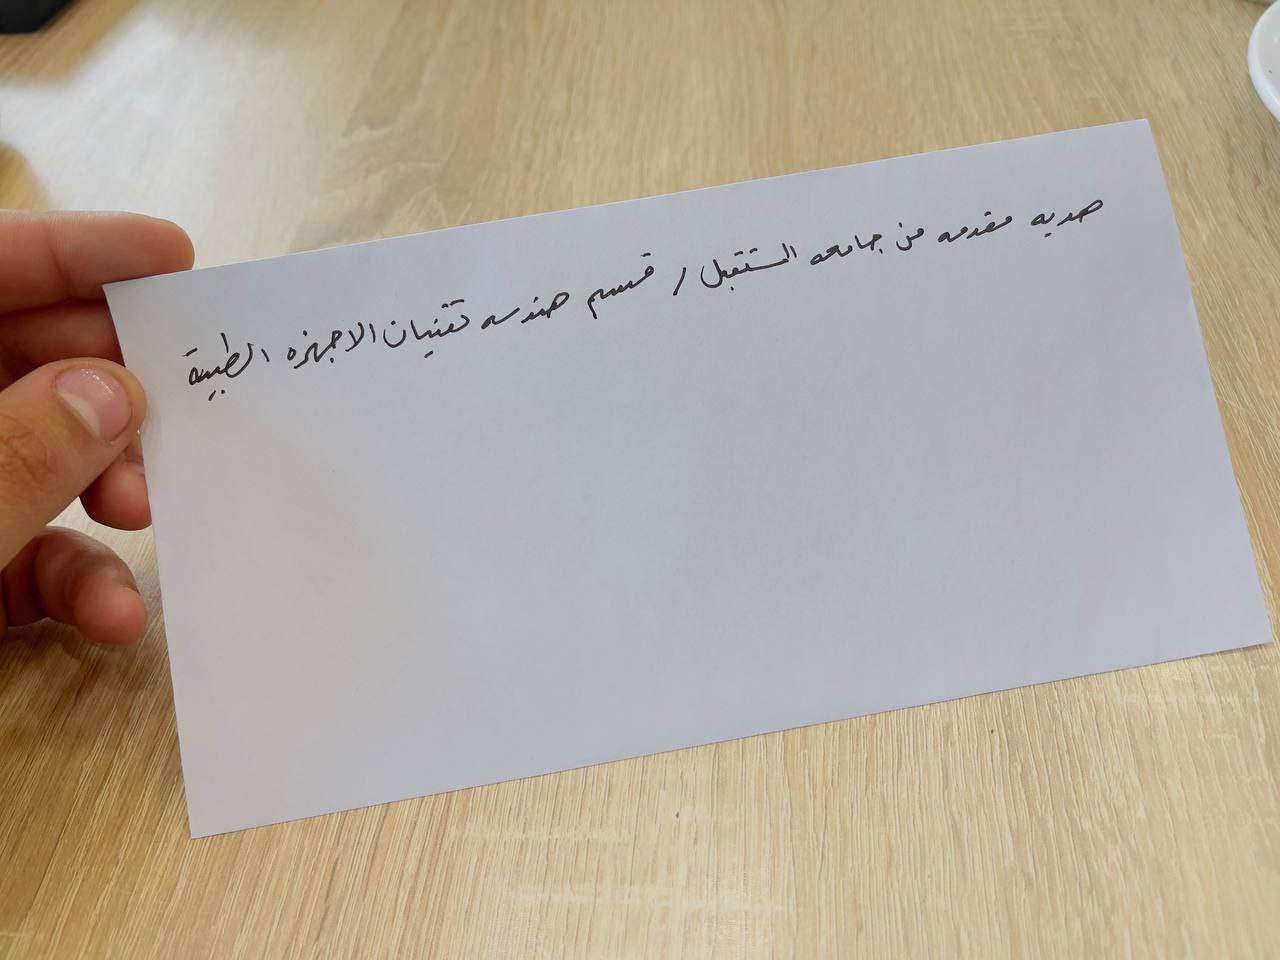 هديه مقدمه من جامعه المستقبل / قسم هندسه تقنيات الاجهزه الطبية